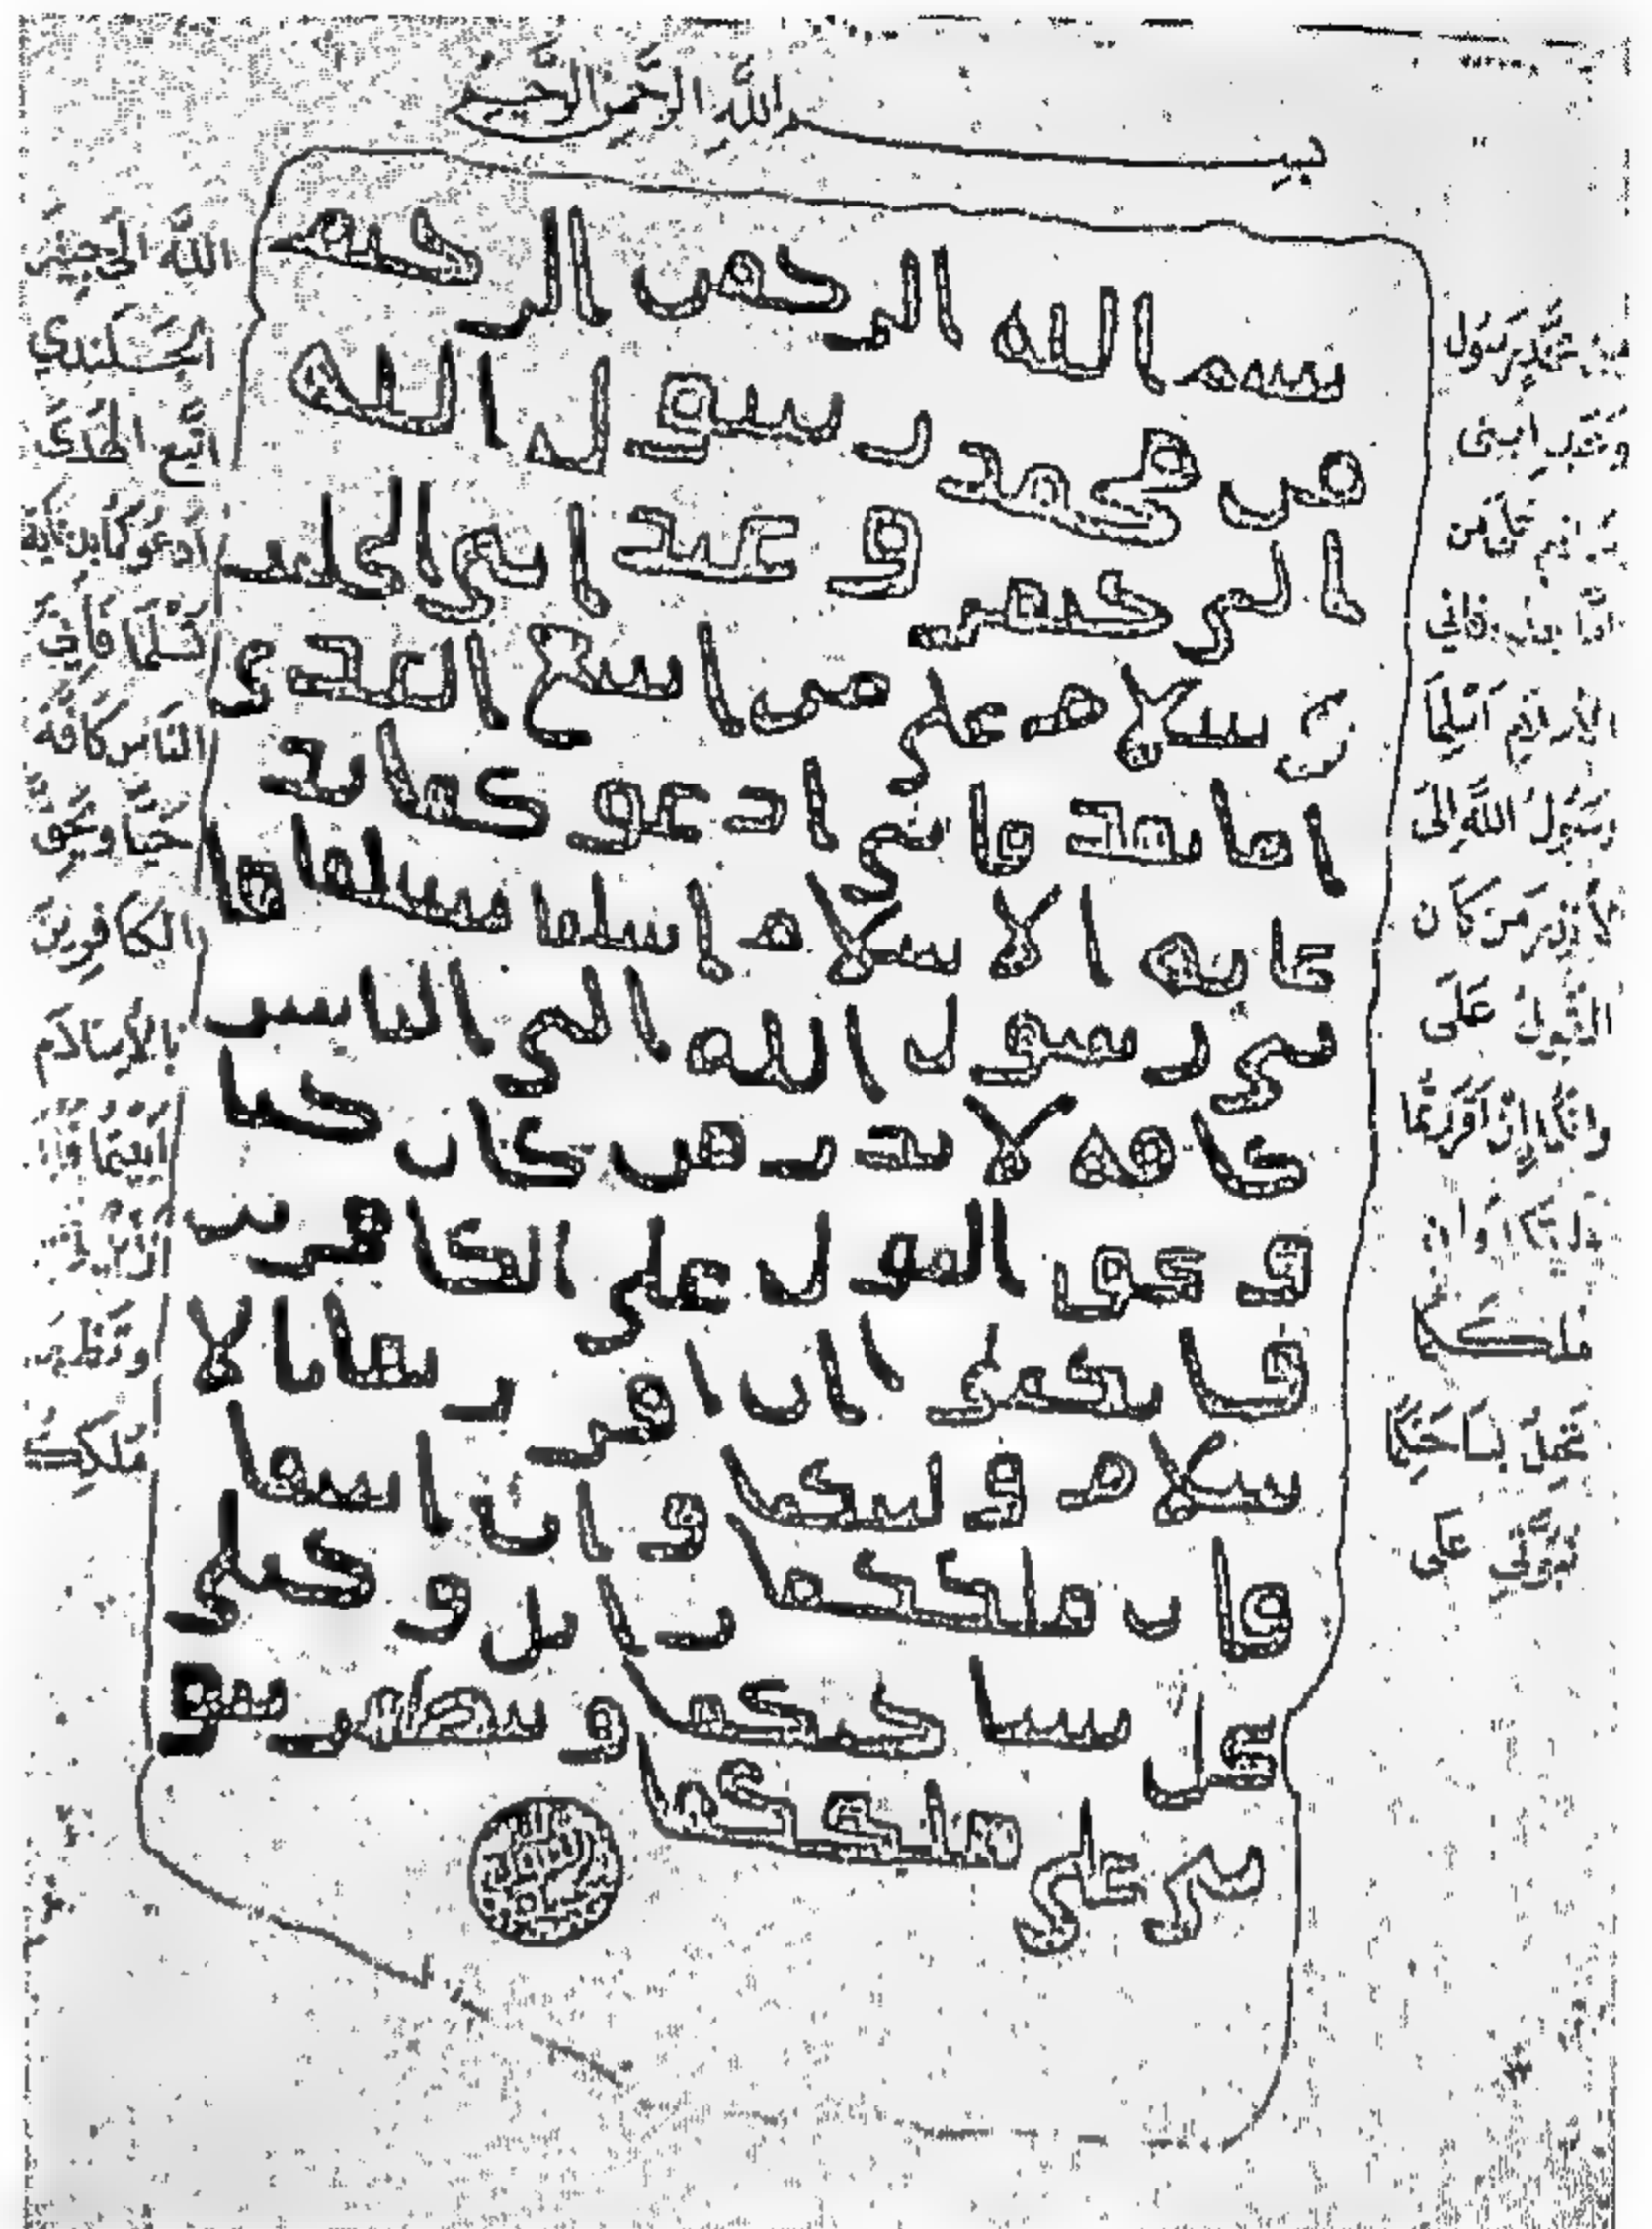 بسم الله الرحمن الرحيم
بسم الله الرحمن الرحيم
من محمد رسول الله
الى جيفر و عبد ابنى الجلند
ى سلام على من اتبع الهدى
اما بعد فانى ادعو كما بد
عايه الاسلام اسلما تسلما فا
نى رسول الله الى الناس
كافه لانذر من كان حيا
و يحق القول على الكافرين
فانكما ان اقررتما بالا
سلام وليتكما و ان ابيتما
فان ملككما زايل و خيلى
تحل بساحتكما و تظهر نبو
تى على ملككما
من مُحَمَّدٍ رَسُول
وَعَبْدِ ابنى
سلام على من
امّا بعد فاني
الاسلام اسْلِمَا
رَسُولُ اللهِ الى
لانذر مَن كان
القولُ عَلَى
وانكما ان اقررتما
وليتكما وان
ملككما
تحل بسَاحَتِكما
نبوّتي على
الله الى جيفر
الجلندي
اتّبع الهدَى
ادعوكما بدعاية
تسلما فاني
النّاس كافّة
حَيًّا ويحقّ
الكافرين
بالاسلام
ابيتما فان
وتظهر
مُلككما